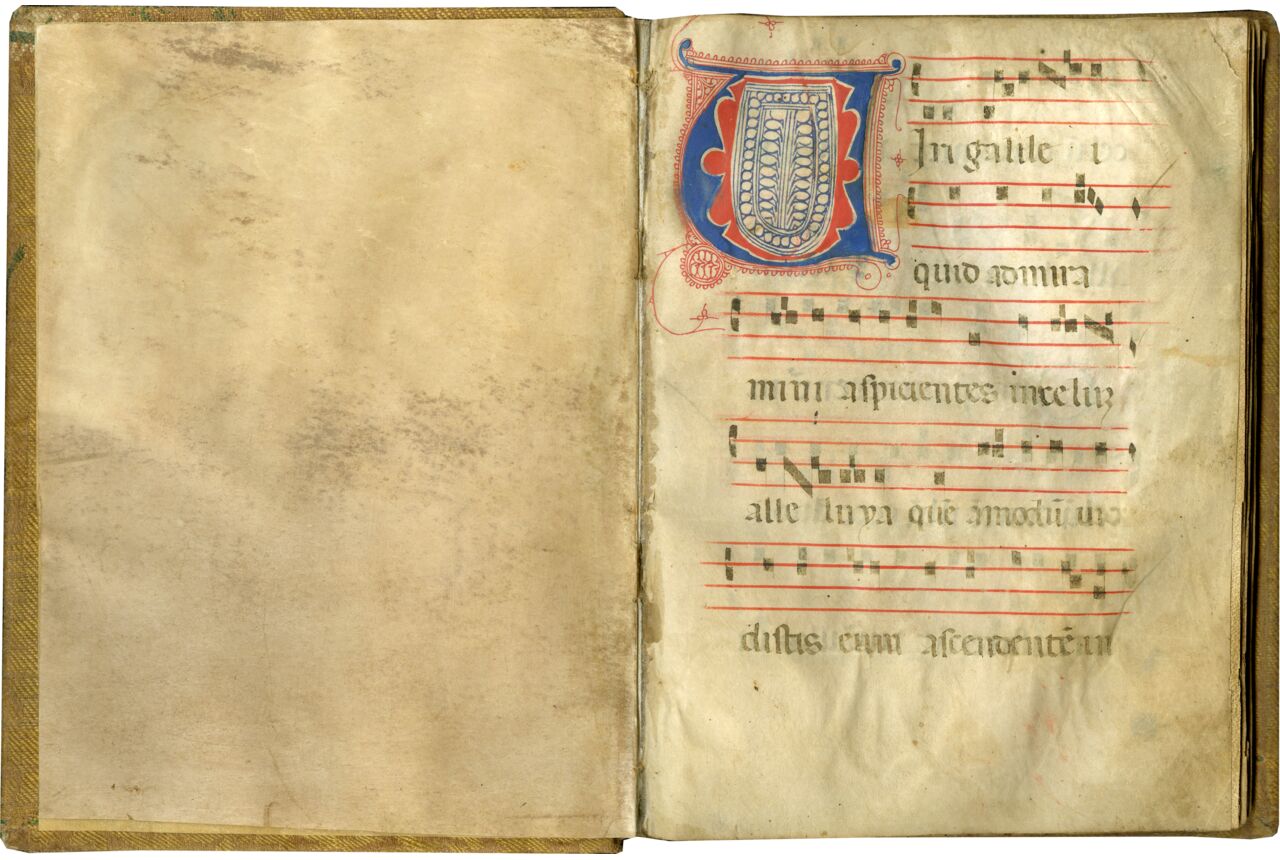 V Iri galile i
quid admira
mini aspicientes in celuz
alle luya quē āmodū ui
distis eum ascendentē in